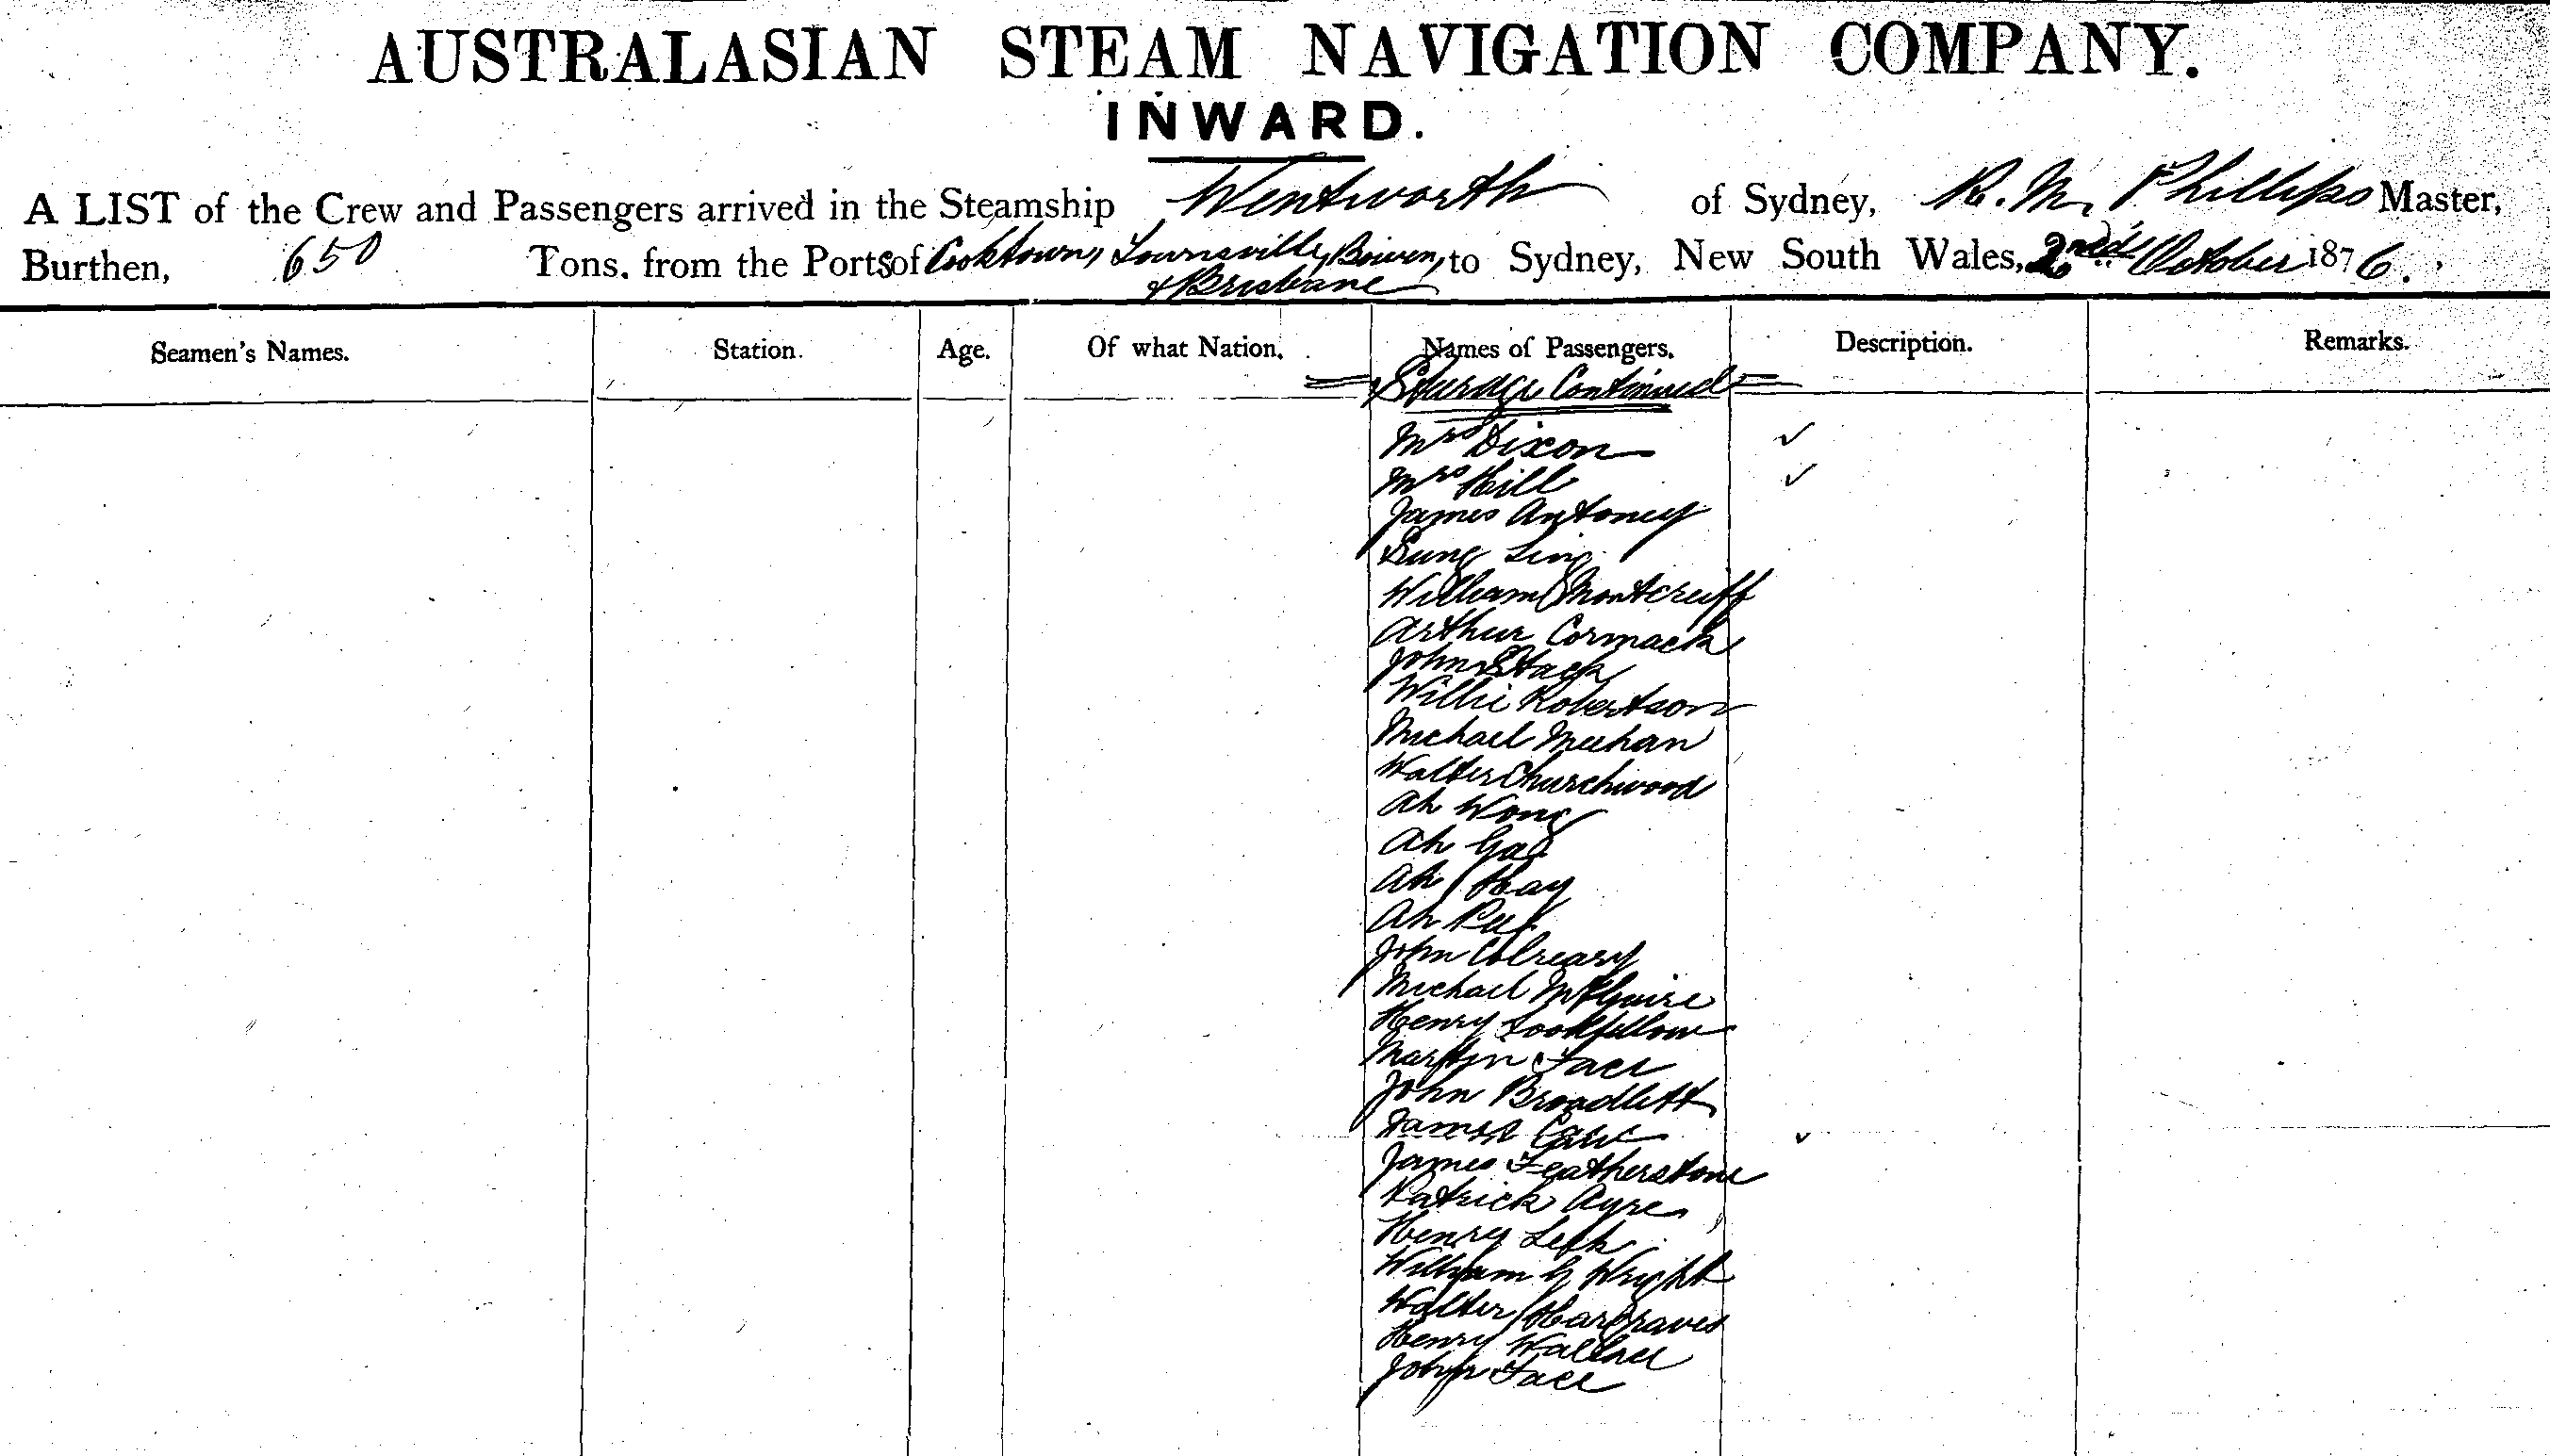 AUSTRALASIAN STEAM NAVIGATION COMPANY.
INWARD.
A LIST of the Crew and Passengers arrived in the Steamship Wentworth of Sydney, R. M. Phillips Master,
Burthen, 650 Tons. from the Ports of Cooktown, Townsville, Bowen, to Sydney, New South Wales, 2nd October 1876.
& Brisbane
Seamen's Names. Station. Age. Of what Nation. Names of Passengers. Description. Remarks.
Steerage Continued
Mrs Dixon ✓
Mrs Hill ✓
James Antoney
Sung Ling
William Montcreiff
Arthur Cormack
John Stack
Willie Robertson
Michael Meehan
Walter Churchwood
Ah Wong
Ah Gay
Ah Hay
Ah
John Colreavy
Michael McGuire
Henry
Martin Face
John Broadlett
James ✓
James Featherstone
Patrick Ayre
Henry
William G Wright
Walter Hargraves
Henry Wallace
John Face